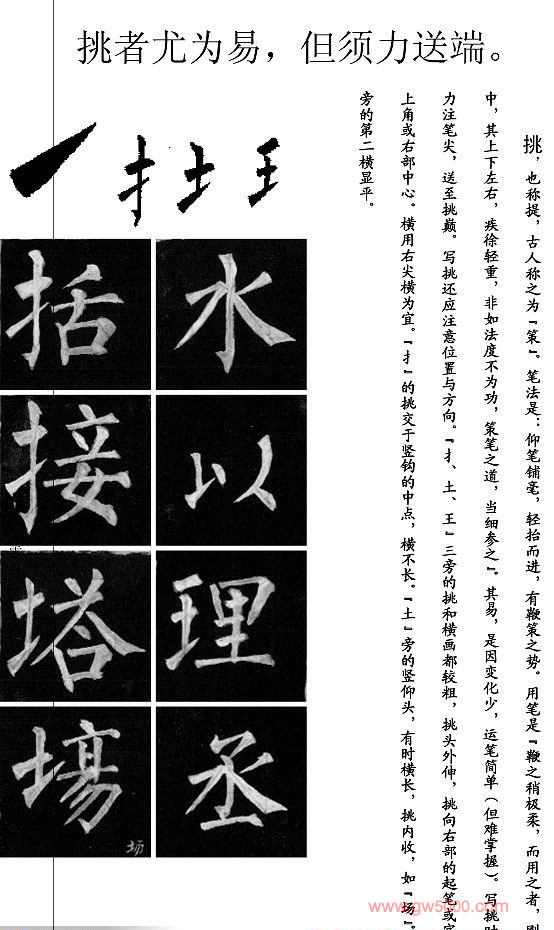 挑者尤为易，但须力送端。
挑，也称提，古人称之为『策』。笔法是：仰笔铺毫，轻抬而进，有鞭策之势。用笔是『鞭之稍极柔，而用之者，
中，其上下左右，疾徐轻重，非如法度不为功，策笔之道，当细参之』。其易，是因变化少，运笔简单（但难掌握）。写挑
力注笔尖，送至挑巅。写挑还应注意位置与方向。『扌、土、王』三旁的挑和横画都较粗，挑头外伸，挑向右部的起笔或
上角或右部中心。横用右尖横为宜。『扌』的挑交于竖钩的中点，横不长。『土』旁的竖仰头，有时横长，挑内收，如『场』。
旁的第二横显平。
扌 土 王
括 水
接 以
塔 理
場 丞
场
www.gw5000.com